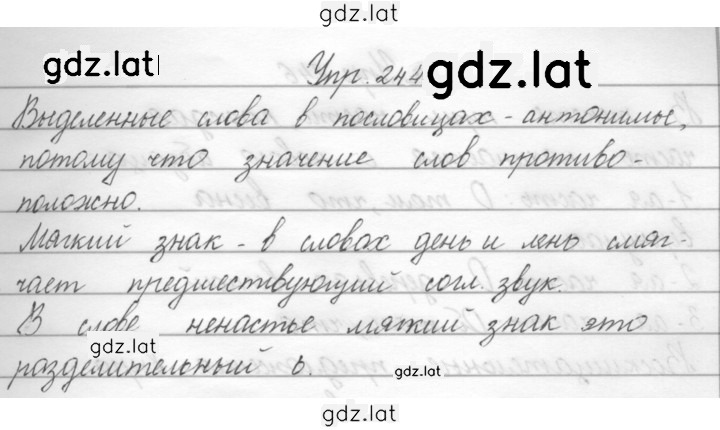 gdz.lat
gdz.lat
Упр. 244
gdz.lat
Выделенные слова в пословицах - антонимы,
потому что значение слов противо-
положно.
Мягкий знак - в словах день и лень смяг-
чает предшествующий согл. звук.
В слове ненастье мягкий знак это
gdz.lat
разделительный ь.
gdz.lat
gdz.lat